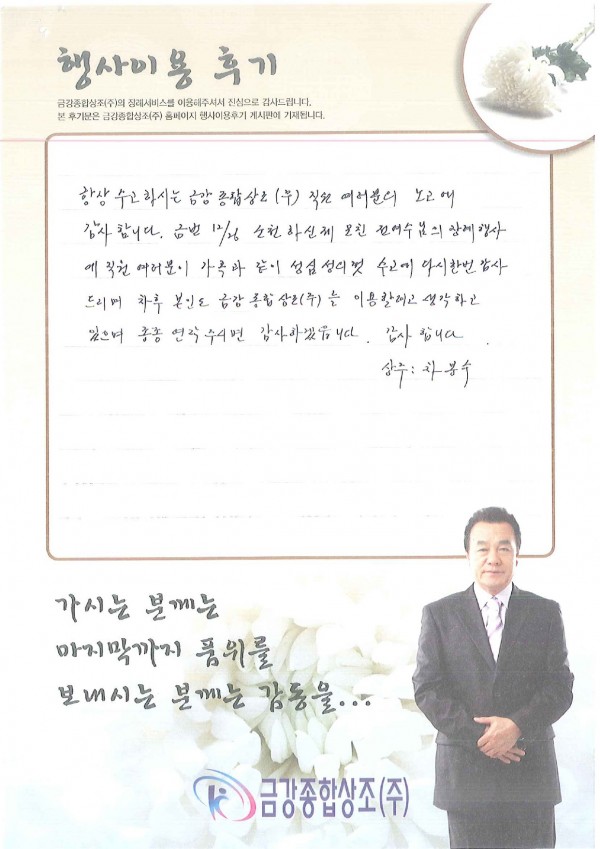 행사이용 후기
금강종합상조(주)의 장례서비스를 이용해주셔서 진심으로 감사드립니다.
본 후기문은 금강종합상조(주) 홈페이지 행사이용후기 게시판에 기재됩니다.
항상 수고하시는 금강 종합상조(주) 직원 여러분의 노고에
감사합니다. 금번 12/26 순천 하신제 모친 전여수님의 장례행사
에 직원 여러분이 가족과 같이 성심 성의껏 수고에 다시한번 감사
드리며 차후 본인도 금강 종합상조(주)를 이용할려고 생각하고
있으며 종종 연락 주시면 감사하겠읍니다. 감사 합니다.
상주: 차봉수
가시는 분께는
마지막까지 품위를
보내시는 분께는 감동을...
금강종합상조(주)